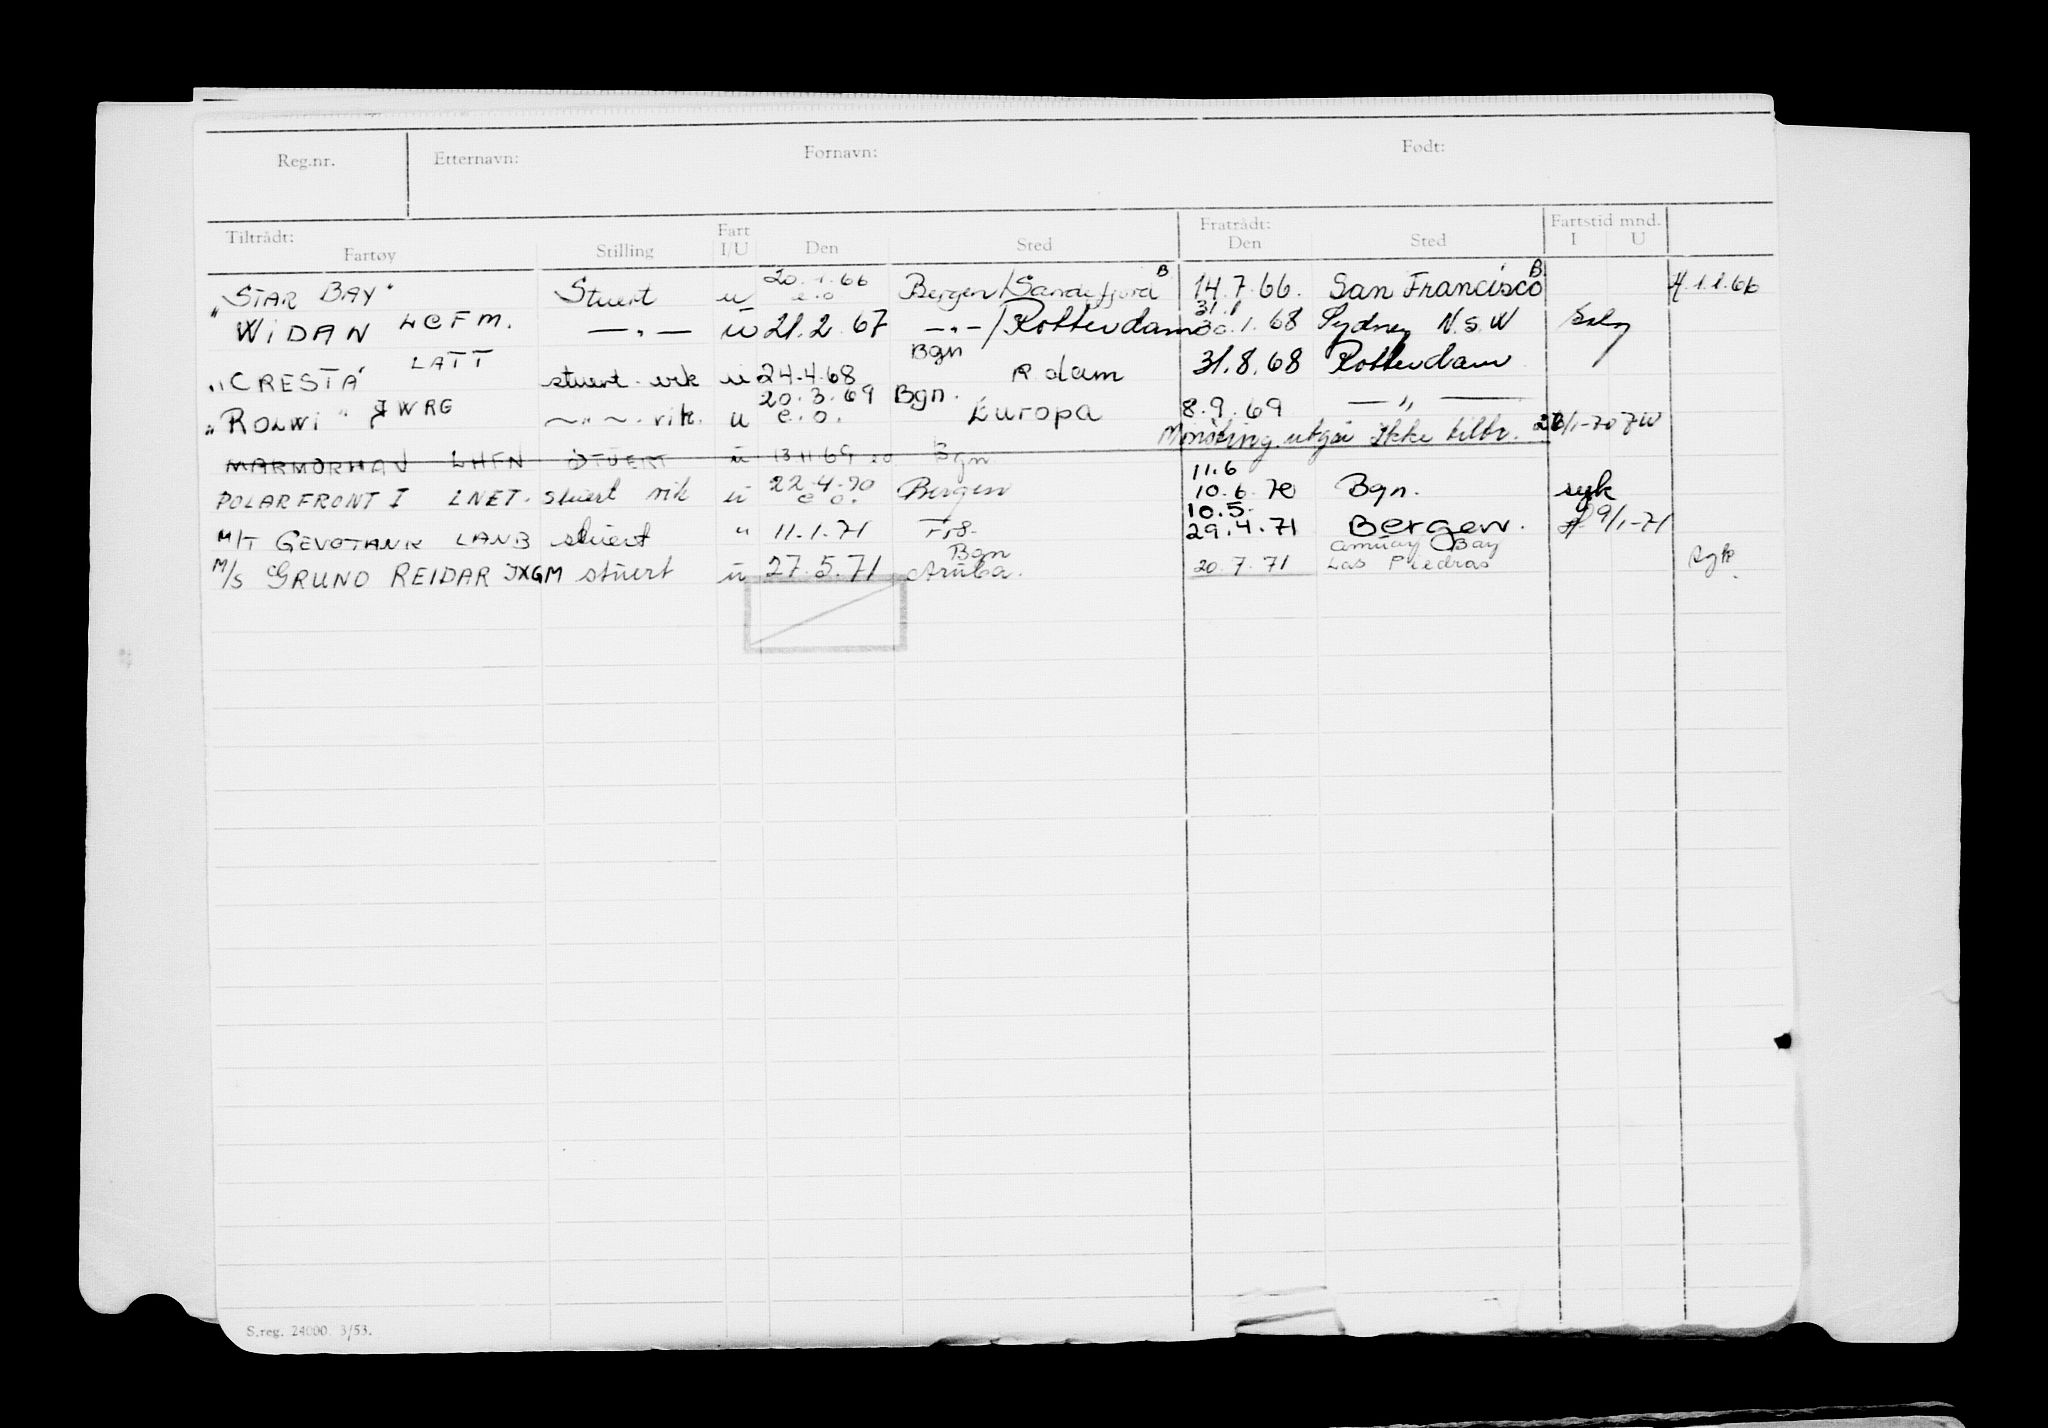 Reg.nr. Etternavn: Fornavn: Født:
Tiltrådt: Fartøy Stilling Fart I/U Den Sted Fratrådt: Den Sted Fartstid mnd. I U
"STAR BAY" Stuert u 20.1.66 e.o Bergen/Sandefjord B 14.7.66. San Francisco B 1.1.66
WIDAN LCFM. —"— u 21.2.67 —"—/Rotterdam 31.1 30.1.68 Sydney N.S.W
"CRESTA" LATT stuert vik u 24.4.68 Bgn R.dam 31.8.68 Rotterdam
"ROLWI" JWRG —"—. vik. u 20.3.69 e.o. Bgn. Europa 8.9.69 —"—
Mønstring utgår Ikke tiltr. 1-70 JW
MARMORHAV LHFN STUERT u 13 11 69 eo Bgn
POLARFRONT I LNET. stuert vik u 22.4.70 e o. Bergen 11.6 10.6.70 Bgn. syk
M/T GEVOTANK LANB stuert " 11.1.71 10.5. 29.4.71 Bergen. 9/1-71
M/S GRUNO REIDAR JXGM stuert u 27.5.71 Bgn Aruba. 20.7.71 Amuay Bay Las Piedras syk.
S.reg. 24000. 3/53.